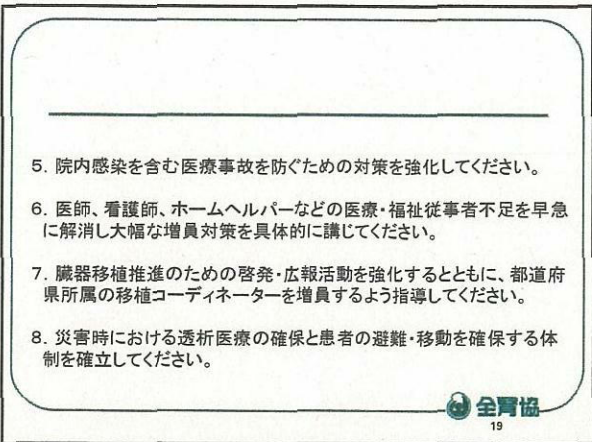 5．院内感染を含む医療事故を防ぐための対策を強化してください。
6．医師、看護師、ホームヘルパーなどの医療・福祉従事者不足を早急
に解消し大幅な増員対策を具体的に講じてください。
7．臓器移植推進のための啓発・広報活動を強化するとともに、都道府
県所属の移植コーディネーターを増員するよう指導してください。
8．災害時における透析医療の確保と患者の避難・移動を確保する体
制を確立してください。
全腎協
19